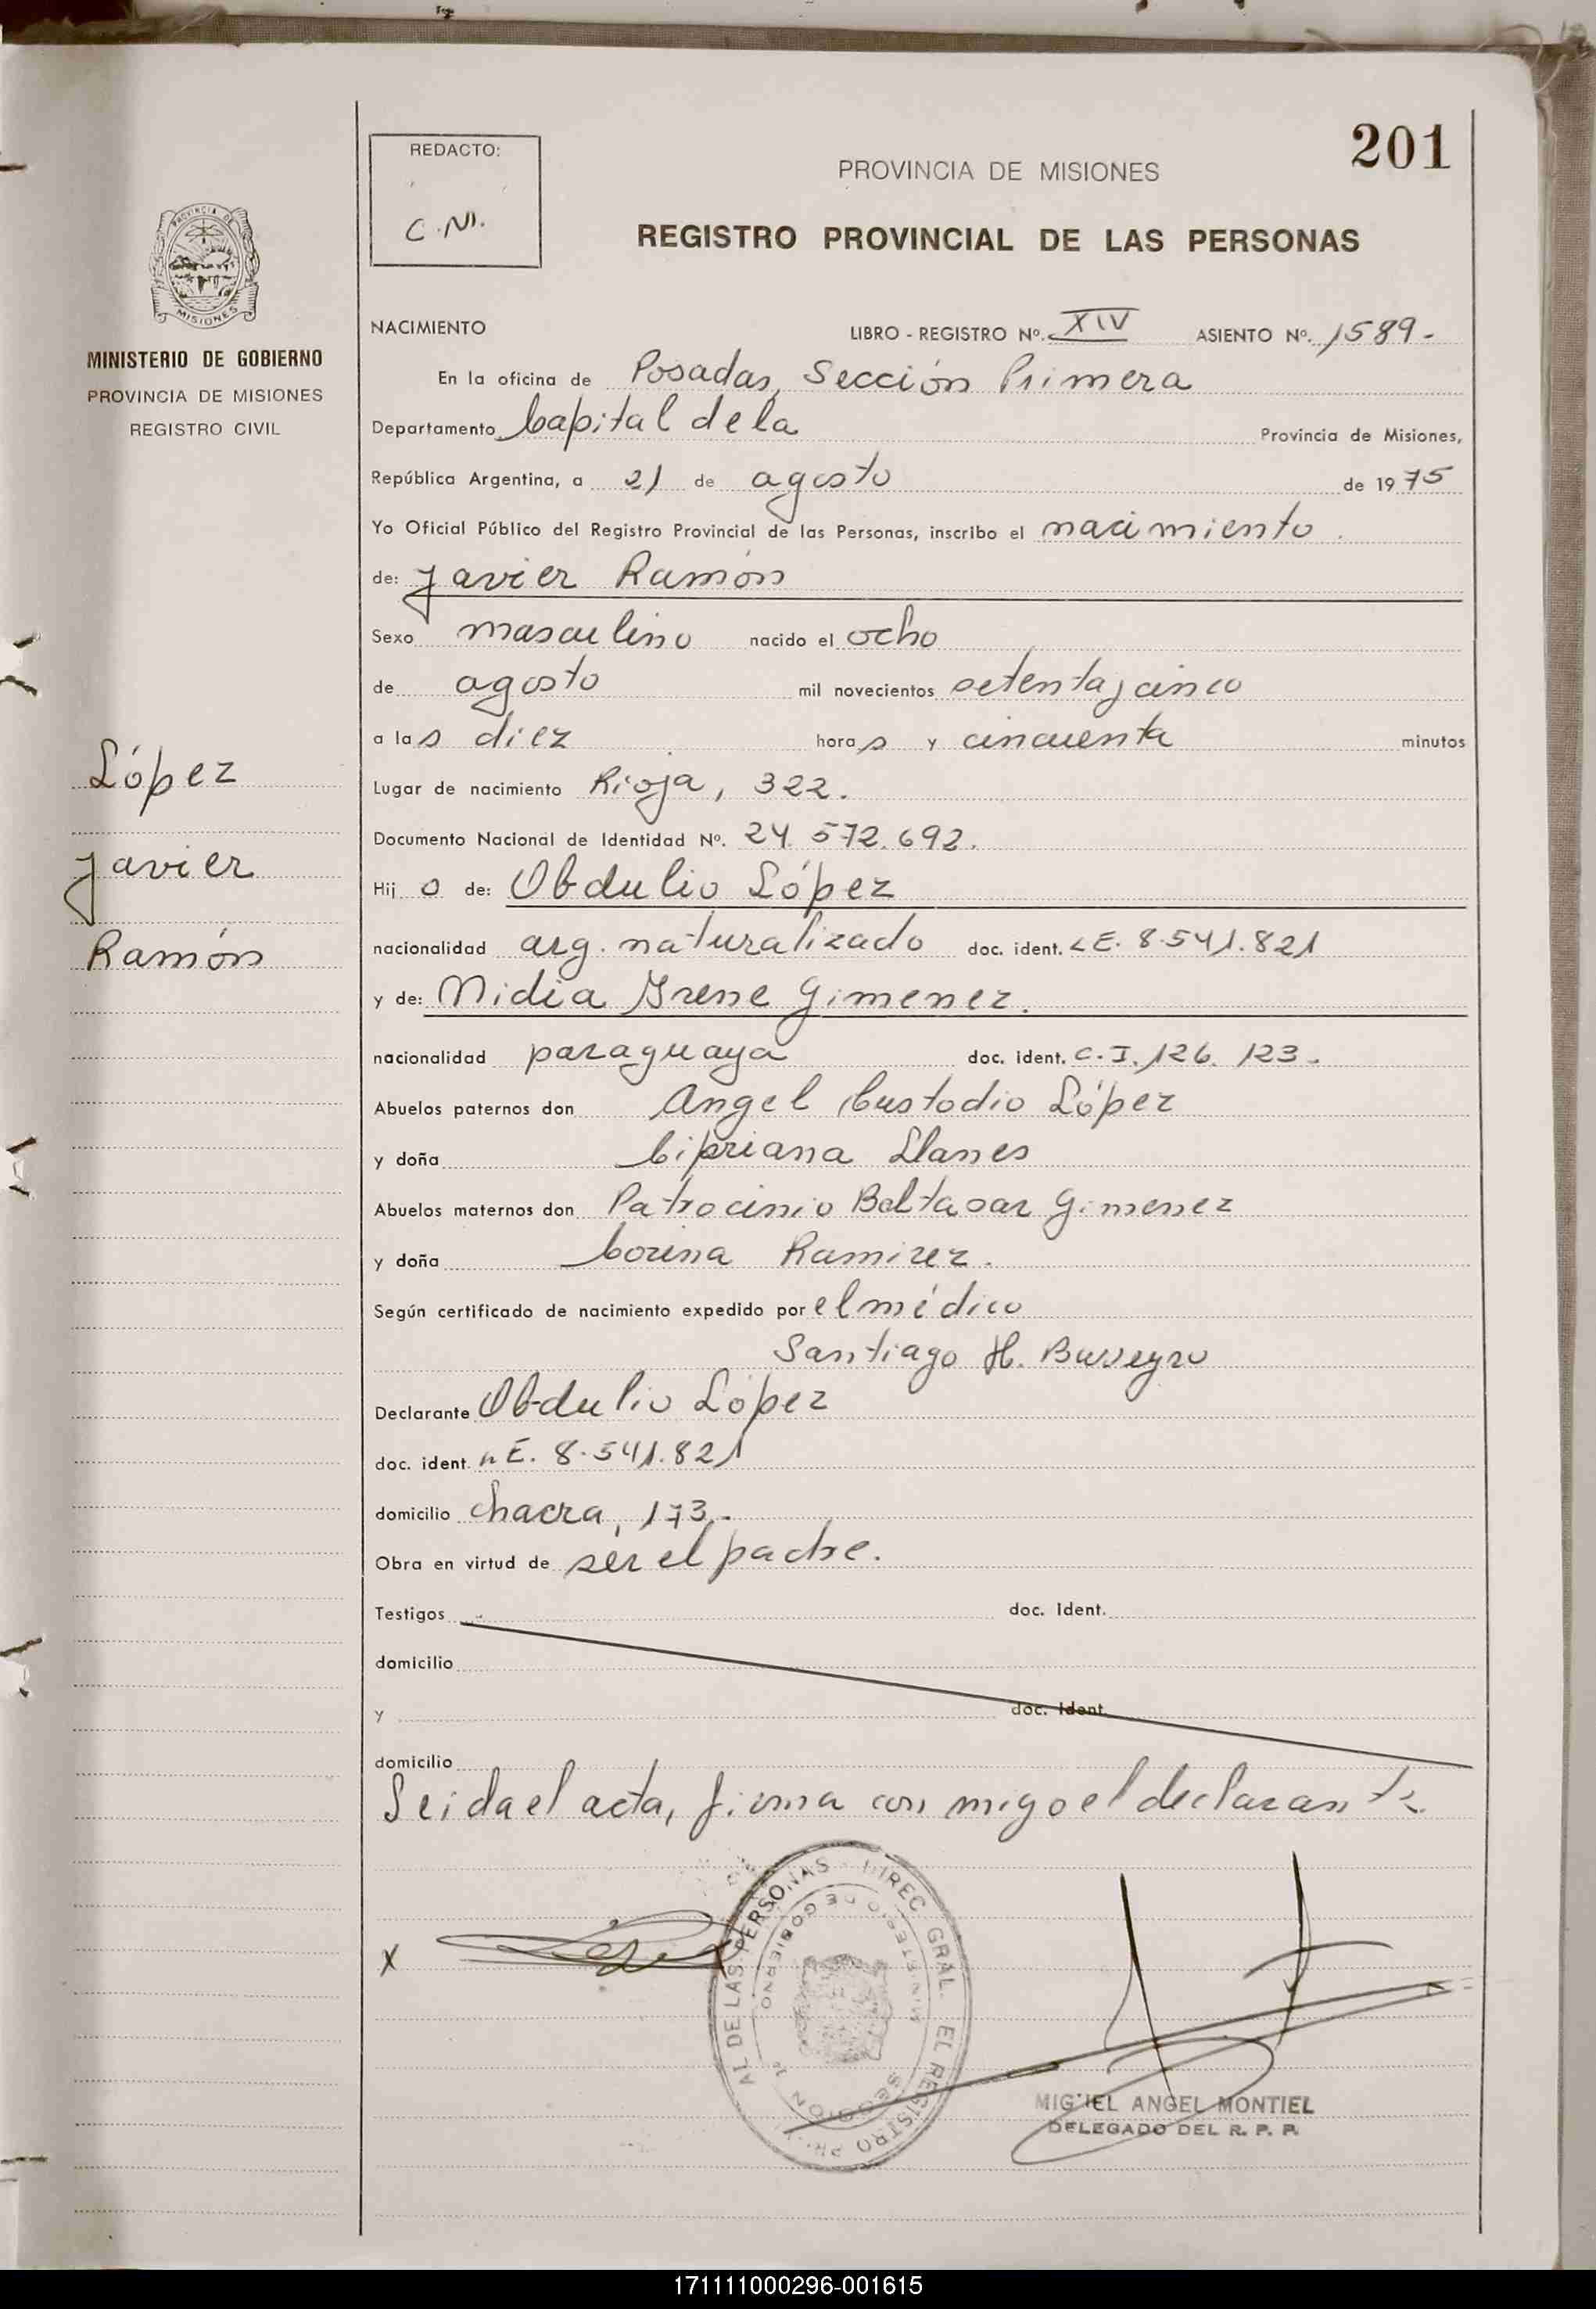 201
REDACTO:
C.M.
PROVINCIA DE MISIONES
REGISTRO PROVINCIAL DE LAS PERSONAS
PROVINCIA DE
MISIONES
MINISTERIO DE GOBIERNO
PROVINCIA DE MISIONES
REGISTRO CIVIL
López
Javier
Ramón
NACIMIENTO LIBRO - REGISTRO Nº. XIV ASIENTO Nº. 1589.-
En la oficina de Posadas, Sección Primera
Departamento Capital de la Provincia de Misiones,
República Argentina, a 21 de agosto de 1975
Yo Oficial Público del Registro Provincial de las Personas, inscribo el nacimiento
de: Javier Ramón
Sexo masculino nacido el ocho
de agosto mil novecientos setenta y cinco
a las diez horas y cincuenta minutos
Lugar de nacimiento Rioja, 322.
Documento Nacional de Identidad Nº. 24.572.692.
Hijo de: Obdulio López
nacionalidad arg. naturalizado doc. ident. L.E. 8.541.821
y de: Nidia Irene Gimenez.
nacionalidad paraguaya doc. ident. C.I. 126.123.-
Abuelos paternos don Angel Custodio López
y doña Cipriana Llanes
Abuelos maternos don Patrocinio Baltasar Gimenez
y doña Corina Ramirez.
Según certificado de nacimiento expedido por el médico
Santiago H.
Declarante Obdulio López
doc. ident. L.E. 8.541.821
domicilio Chacra, 173.-
Obra en virtud de ser el padre.
Testigos doc. Ident.
domicilio
y doc. Ident.
domicilio
Leida el acta, firma con migo el declarante.
X López
DIREC. GRAL. EL REGISTRO AL DE LAS PERSONAS
MINISTERIO DE GOBIERNO
SECCION 1ª
MIGUEL ANGEL MONTIEL
DELEGADO DEL R. P. P.
171111000296-001615